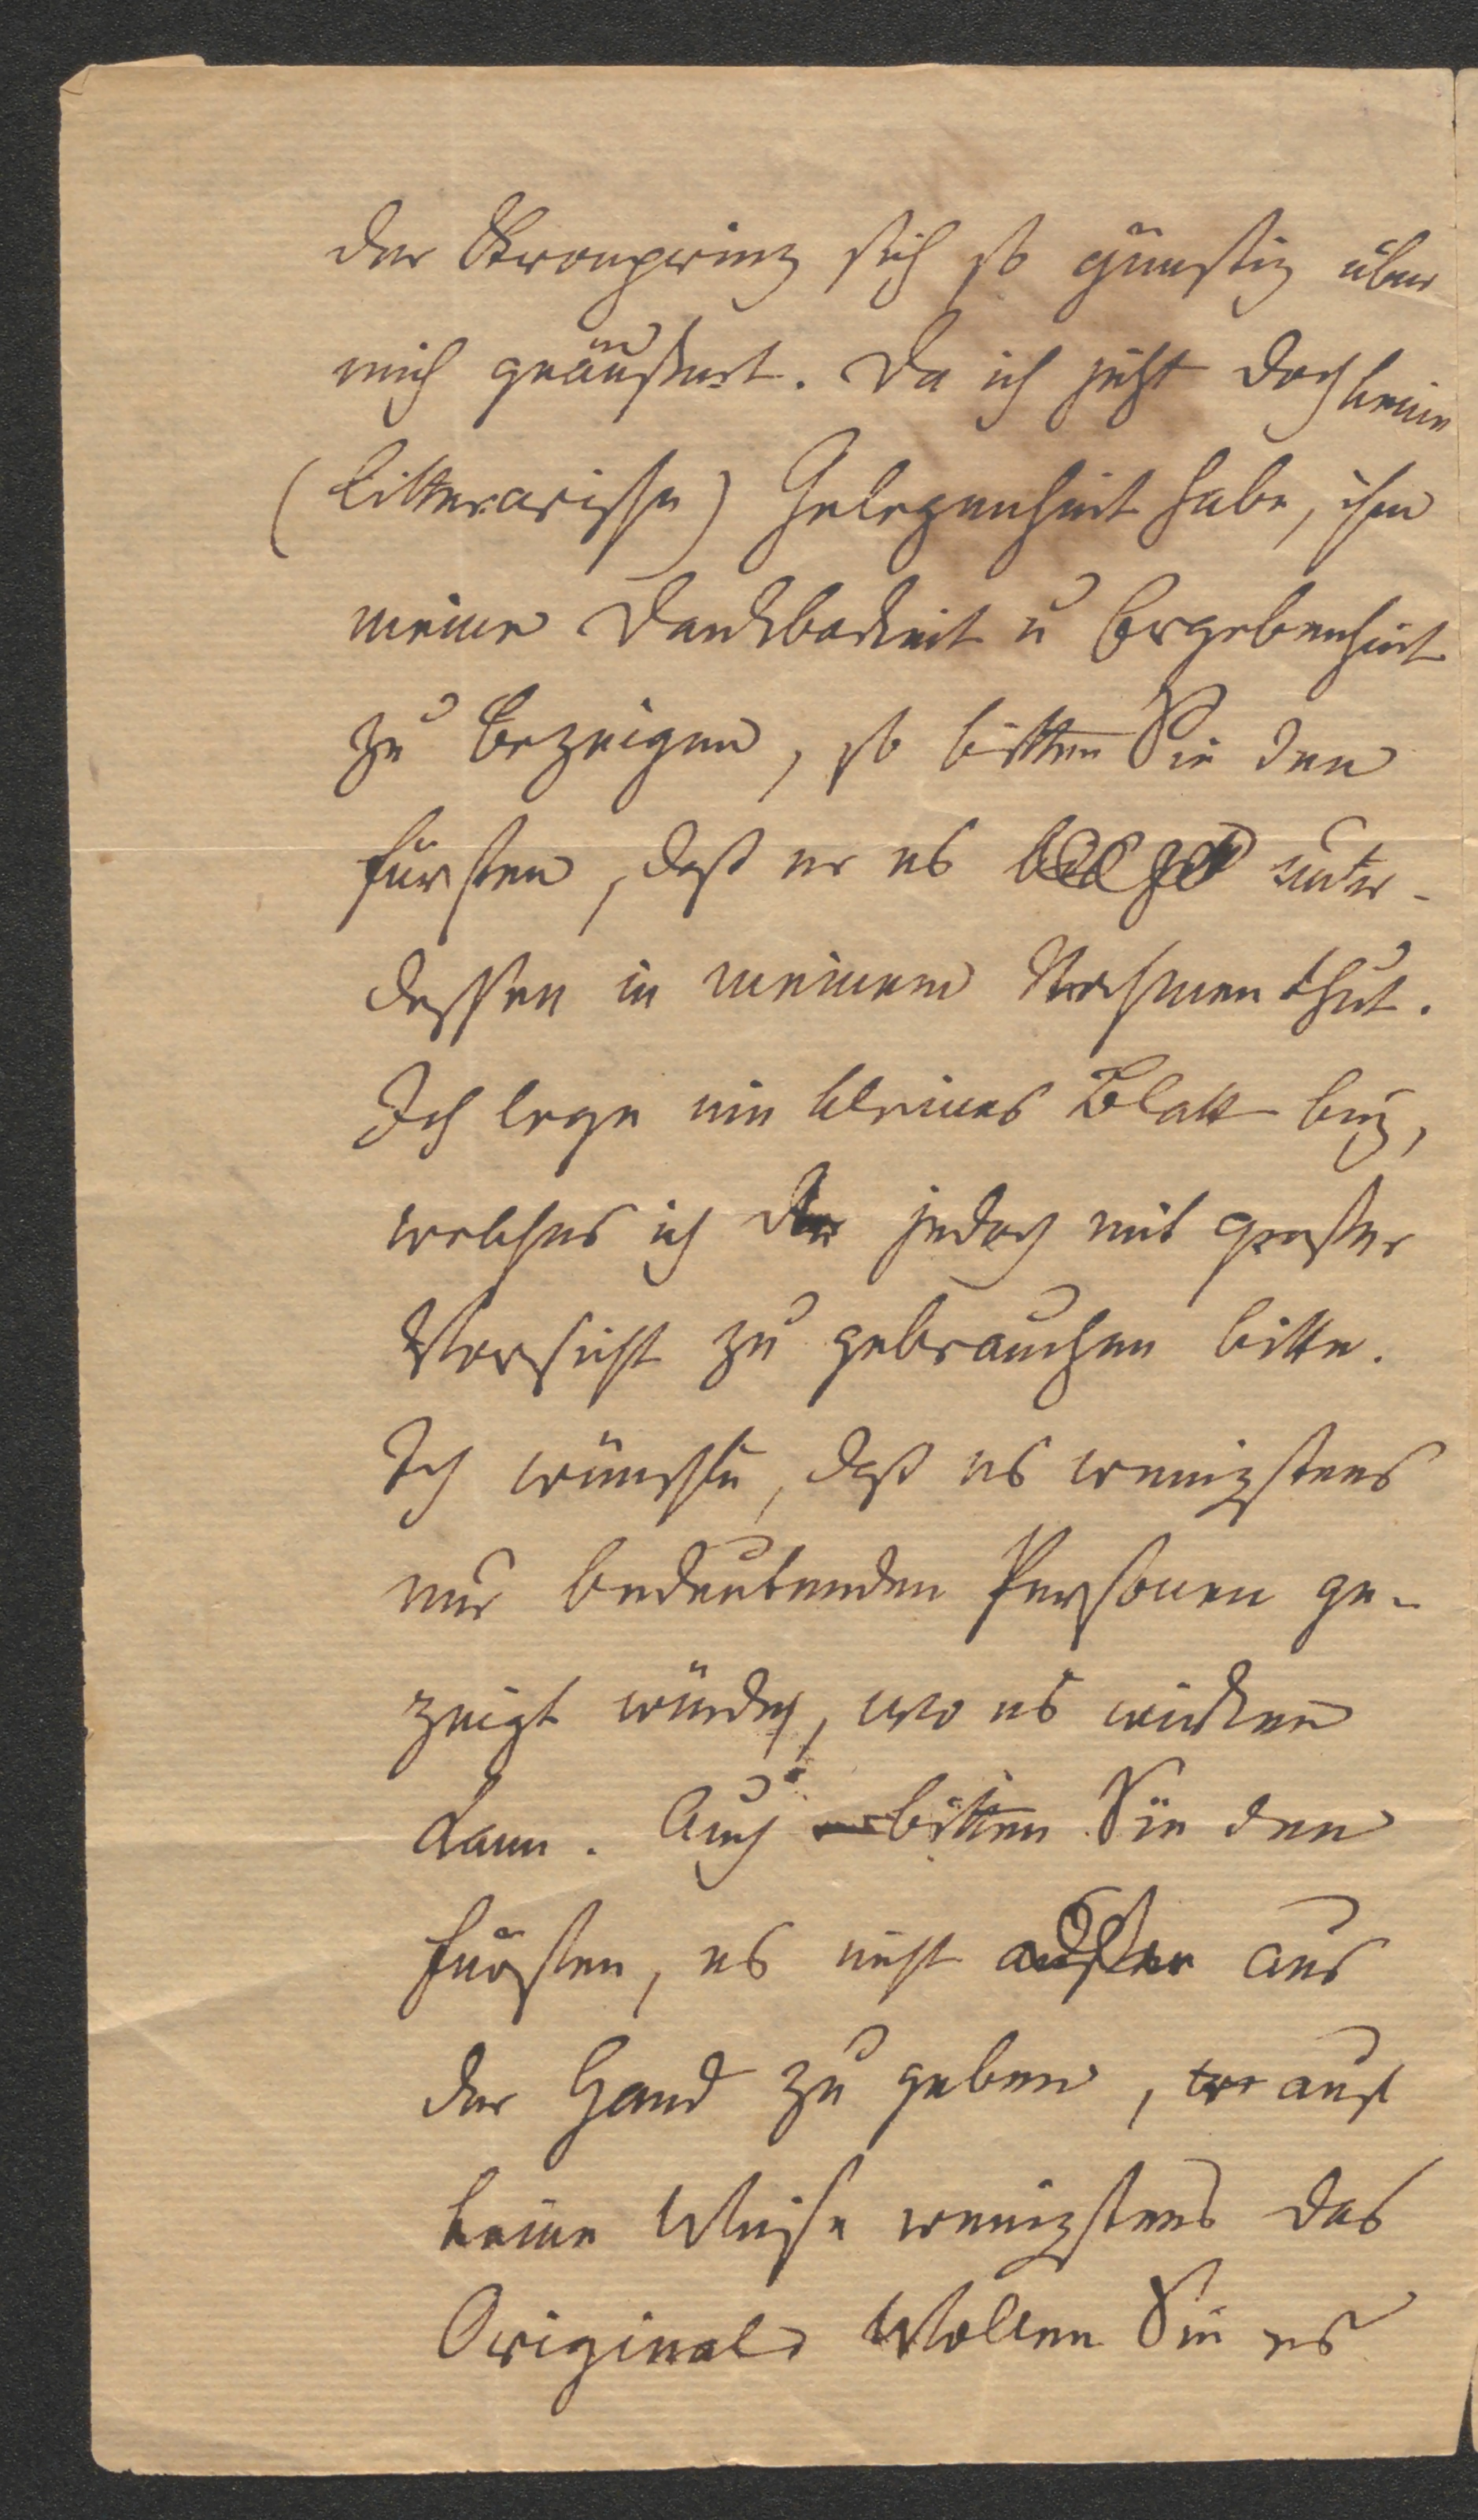 der Kronprinz sich so günstig über
mich geäußert. Da ich jetzt doch keine
(litterarische) Gelegenheit habe, ihm
meine Dankbarkeit u Ergebenheit
zu bezeigen, so bitten Sie den
Fürsten, daß er es unter-
dessen in meinem Nahmen thut.
Ich lege ein kleines Blatt bey,
welches ich jedoch mit großer
Vorsicht zu gebrauchen bitte.
Ich wünschte, daß es wenigstens
nur bedeutenden Personen ge-
zeigt würde, wo es wirken
kann. Auch bitten Sie den
Fürsten, es nicht aus
der Hand zu geben, auf
keine Weise wenigstens das
Original. Wollen Sie es